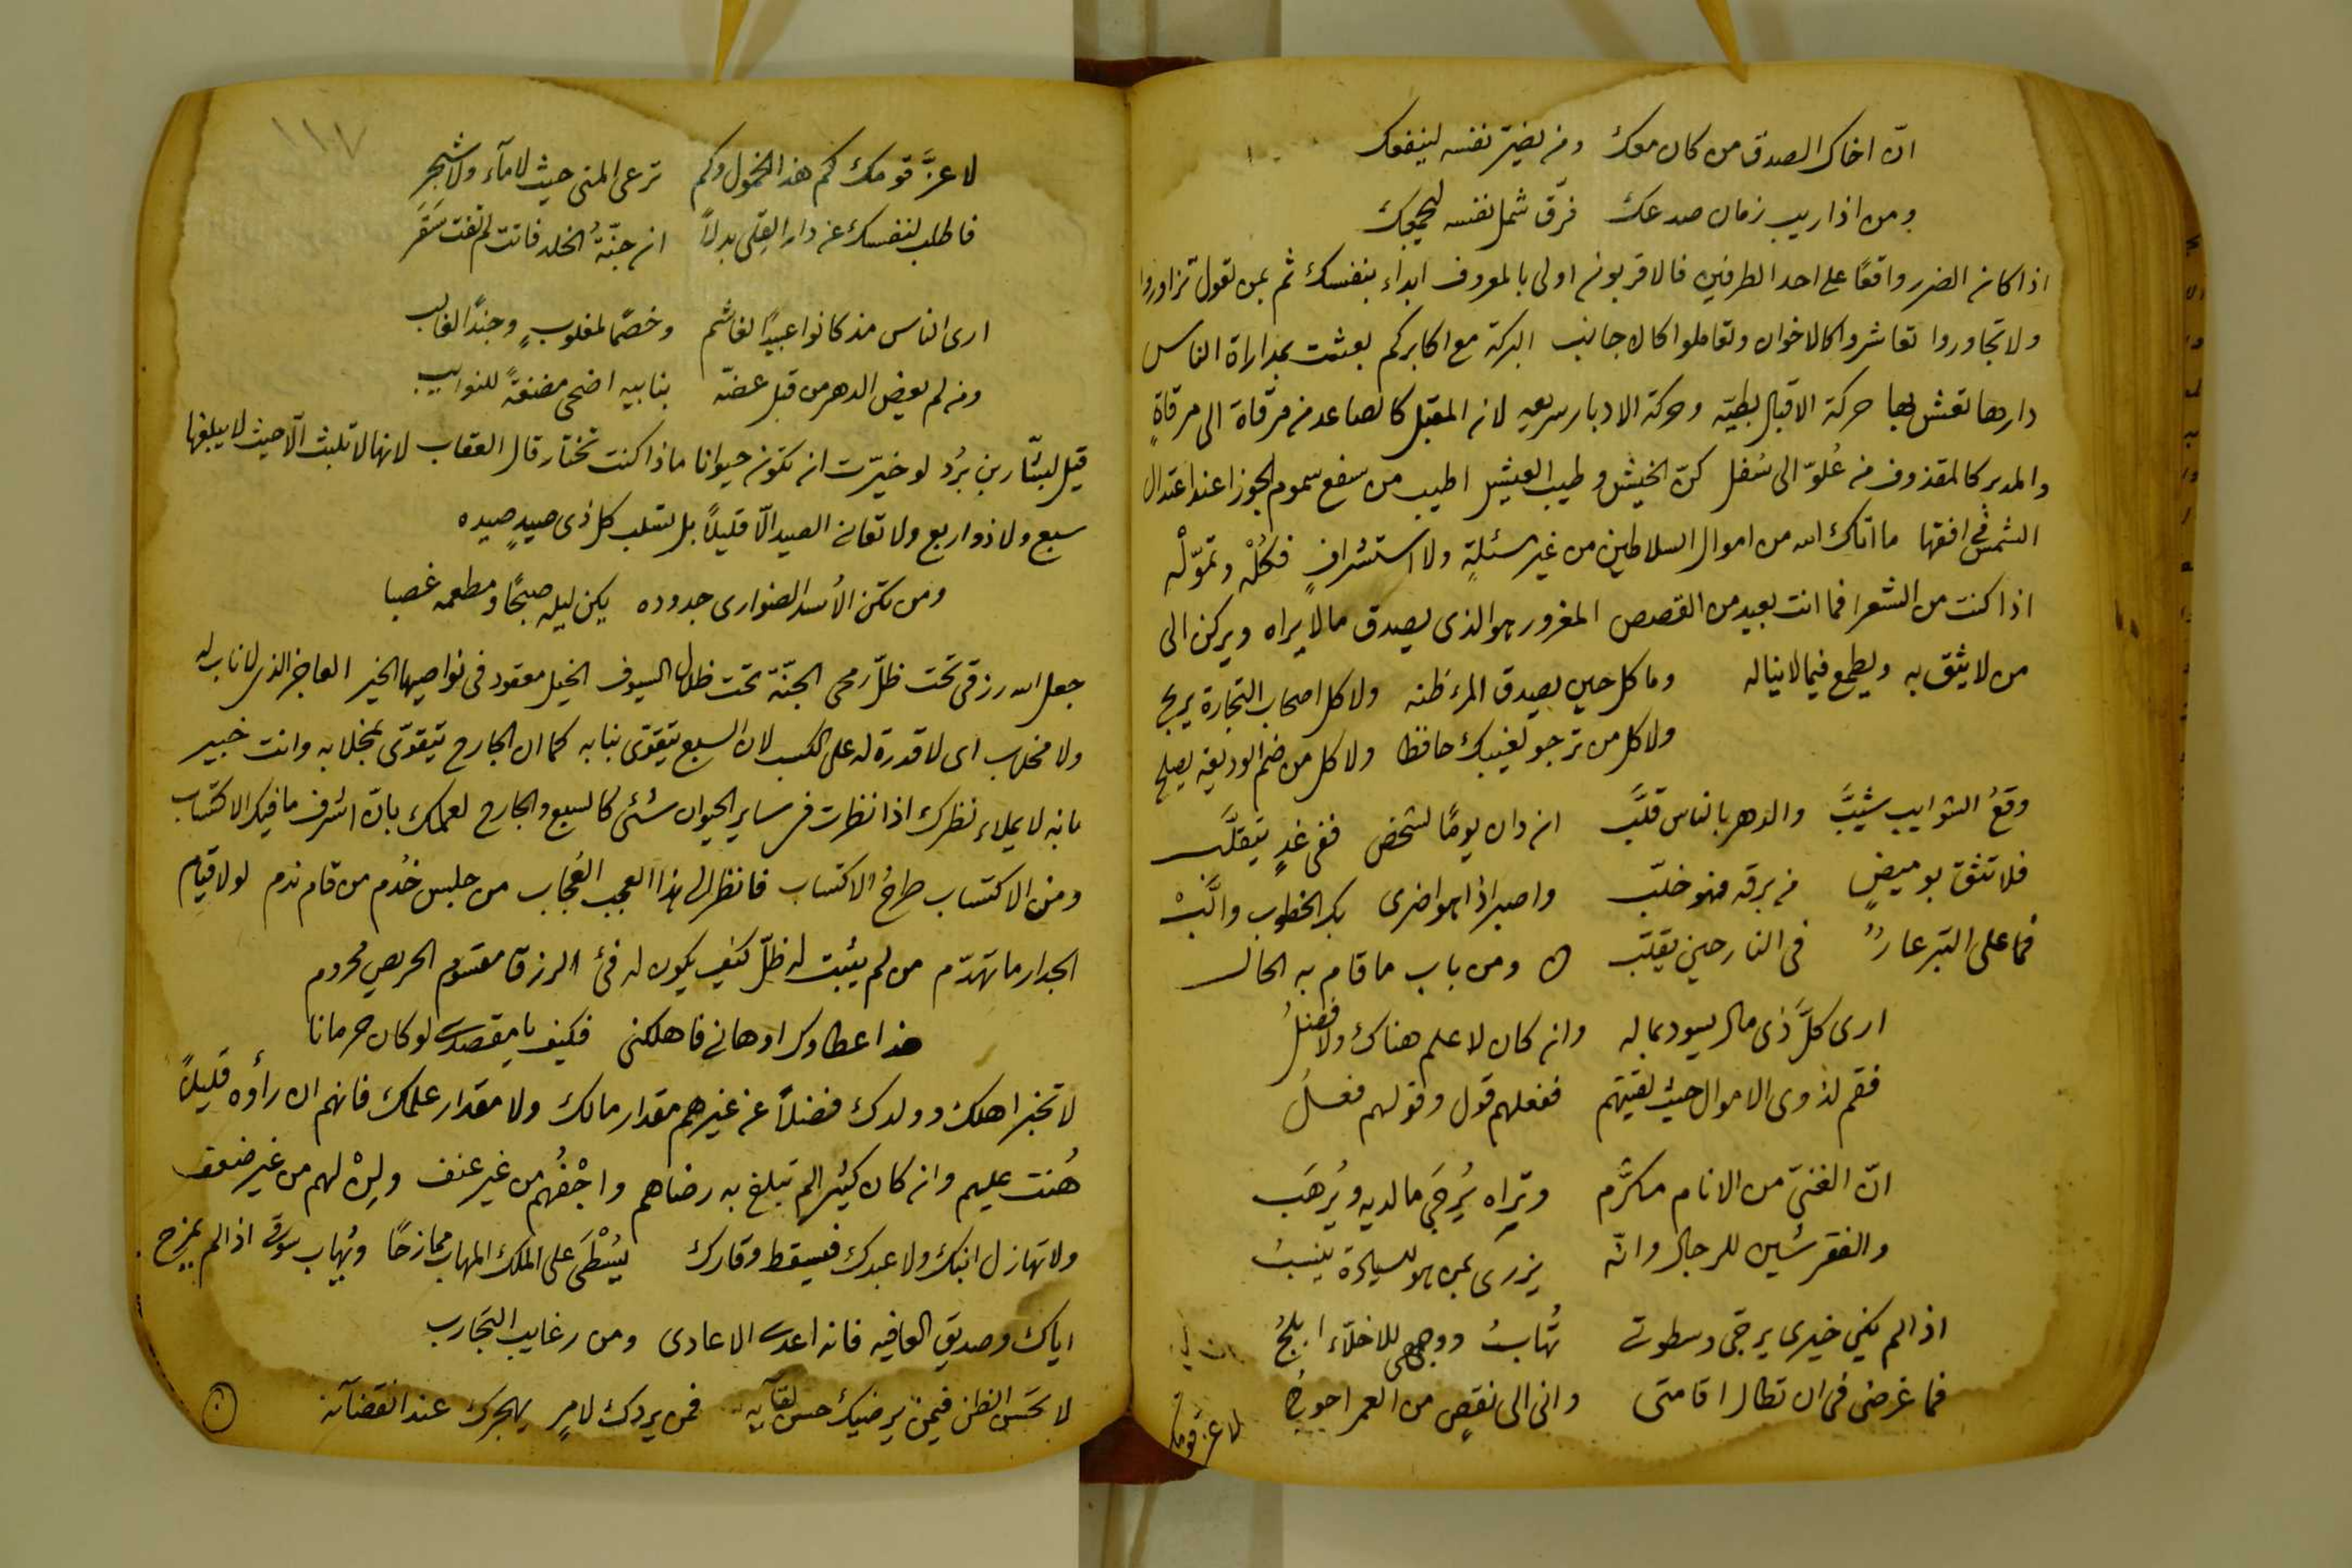 انّ اخاك الصدق من كان معك ومن يضرّ نفسه لينفعك
ومن اذا ريب زمان صدعك فرّق شمل نفسه ليجمعك
اذا كان الضرر واقعًا على احد الطرفين فالاقربون اولى بالمعروف ابداء بنفسك ثم بمن تعول تزاوروا
ولا تجاوروا تعاشروا كالاخوان وتعاملوا كالاجانب البركة مع اكابركم بعثت بمداراة الناس
دارها تعش بها حركة الاقبال بطيّه وحركة الادبار سريعه لان المقبل كالصاعد من مرقاة الى مرقاةٍ
والمدبر كالمقذوف من عُلوّ الى سُفل كنّ الخيش وطيب العيش اطيب من سفع سموم الجوزا عند اعتدال
الشمس في افقها ما اتاك الله من اموال السلاطين من غير مسئلةٍ ولا استشرافٍ فكُلْه وتموّلْه
اذا كنت من الشعرا فما انت بعيد من القصص المغرور هو الذى يصدق مالا يراه ويركن الى
من لا يثق به ويطمع فيما لا يناله وما كل حين يصدق المرء ظنه ولا كل اصحاب التجارة يربح
ولا كل من ترجو لغيبك حافظا ولا كل من ضم الوديعة يصلح
وقعُ الشوايب شيّبَ والدهر بالناس قلّب ان دان يومًا لشخص ففى غدٍ يتقلّب
فلا تثق بوميضٍ من برقه فهو خلّب واصبر اذا هو اضرى بك الخطوب والّبْ
فما على التبر عارٌ فى النار حين يقلّب ومن باب ما قام به الحال
ارى كلّ ذى مال يسود بماله وان كان لا علم هناك ولا فضلُ
فقم لذوى الاموال حيث لقيتهم ففعلهم قول وقولهم فعلُ
انّ الغنىّ من الانام مكرَّم وتراه يُرجَى مالديه ويُرهَب
والفقر شين للرجال وانّه يزرى بمن هو للسيادة ينسبُ
اذا لم يكن خيرى يرجّى وسطوتى تُهابُ ووجهى للاخلّاء ابلجُ
فما غرضى فى ان تطال اقامتى وانى الى نقصٍ من العمر احوج
لا عز قومك
١١٧
لا عزَّ قومك كم هذا الخمول وكم ترعى المنى حيث لا ماء ولا شجر
فاطلب لنفسك عن دار القِلى بدلاً ان جنّةُ الخلد فاتت لم تفت سَقَر
ارى الناس مذ كانوا عبيدًا لغاشم وخصمًا لمغلوبٍ وجندًا لغالب
ومن لم يعض الدهر من قبل عضّه بنابيه اضحى مضغةً للنوايب
قيل لبشّار بن بُرد لو خيّرت ان تكون حيوانا ماذا كنت تختار قال العقاب لانها لا تلبث الّا حيث لا يبلغها
سبع ولا ذو اربع ولا تعانى الصيد الّا قليلاً بل تسلب كل ذى صيدٍ صيده
ومن تكن الأسد الضوارى جدوده يكن ليله صبحًا ومطعمه غصبا
جعل الله رزقى تحت ظلّ رمحى الجنّة تحت ظلال السيوف الخيل معقود فى نواصيها الخير العاجز الذى لا ناب له
ولا مخلاب اى لا قدرة له على الكسب لان السبع يتقوّى بنابه كما ان الجارح يتقوّى بمخلابه وانت خبير
بانه لا يملاء نظرك اذا نظرت فى ساير الحيوان شئى كالسبع والجارح لعلمك بانّ اشرف ما فيك الاكتساب
ومن الاكتساب طرحُ الاكتساب فانظر الى هذا العجب العُجاب من جلس خُدم من قام ندم لولا قيام
الجدار ما تهدّم من لم يثبت له ظلّ كيف يكون له فئ الرزق مقسوم الحريص محروم
هذا عطاوك ادهانى فاهلكنى فكيف يا مقصدى لو كان حرمانا
لا تخبر اهلك وولدك فضلاً عن غيرهم مقدار مالك ولا مقدار علمك فانهم ان رأوه قليلاً
هُنت عليهم وان كان كثيرا لم تبلغ به رضاهم واجْفُهم من غير عنف ولِنْ لهم من غير ضعف
ولا تهازل ابنك ولا عبدك فيسقط وقارك يُسْطَى على الملك المهاب ممازحًا ويُهاب سوقى اذا لم يمزح
اياك وصديق العافيه فانه اعدى الاعادى ومن رغايب التجارب
لا تحسن الظن فيمن يرضيك حسن لقآيه فمن يردك لامرٍ يهجرك عند انقضآئه